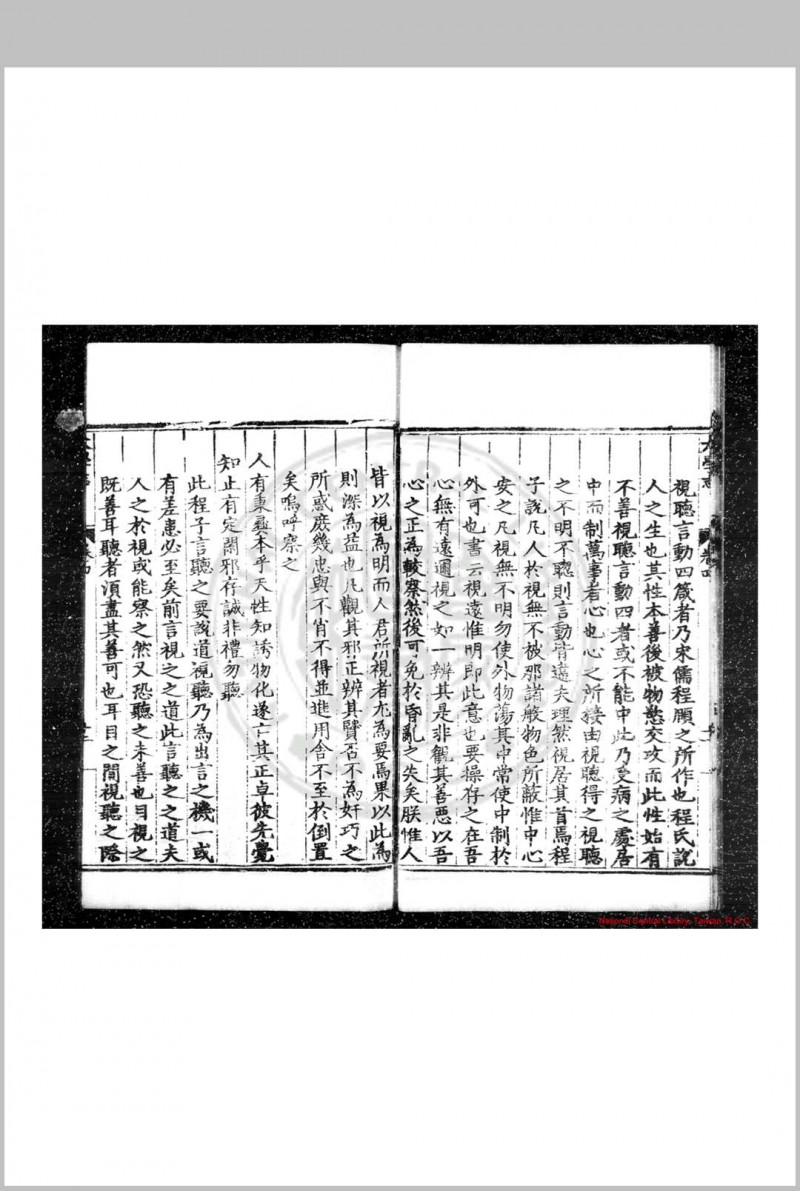 視聽言動四箴者乃宋儒程頤之所作也程氏說
人之生也其性本善後被物慾交攻而此性始有
不善視聽言動四者或不能中此乃受病之處居
中而制萬事者心也心之所接由視聽得之視聽
之不明不聰則言動皆違夫理然視居其首焉程
子說凡人於視無不被那諸般物色所蔽惟中心
安之凡視無不明勿使外物蕩其中常使中制於
外可也書云視遠惟明即此意也要操存之在吾
心無有遠邇視之如一辨其是非觀其善惡以吾
心之正為較察然後可免於昏亂之失矣朕惟人
皆以視為明而人君所視者尤為要焉果以此為
則深為益也凡觀其邪正辨其賢否不為奸巧之
所惑庶幾忠與不肖不得並進用舍不至於倒置
矣嗚呼察之
人有秉彝本乎天性知誘物化遂亡其正卓彼先覺
知止有定閑邪存誠非禮勿聽
此程子言聽之要說道視聽乃為出言之機一或
有差患必至矣前言視之之道此言聽之之道夫
人之於視或能察之然又恐聽之未善也目視之
既善耳聽者須盡其善可也耳目之間視聽之際
National Central Library, Taiwan, R.O.C